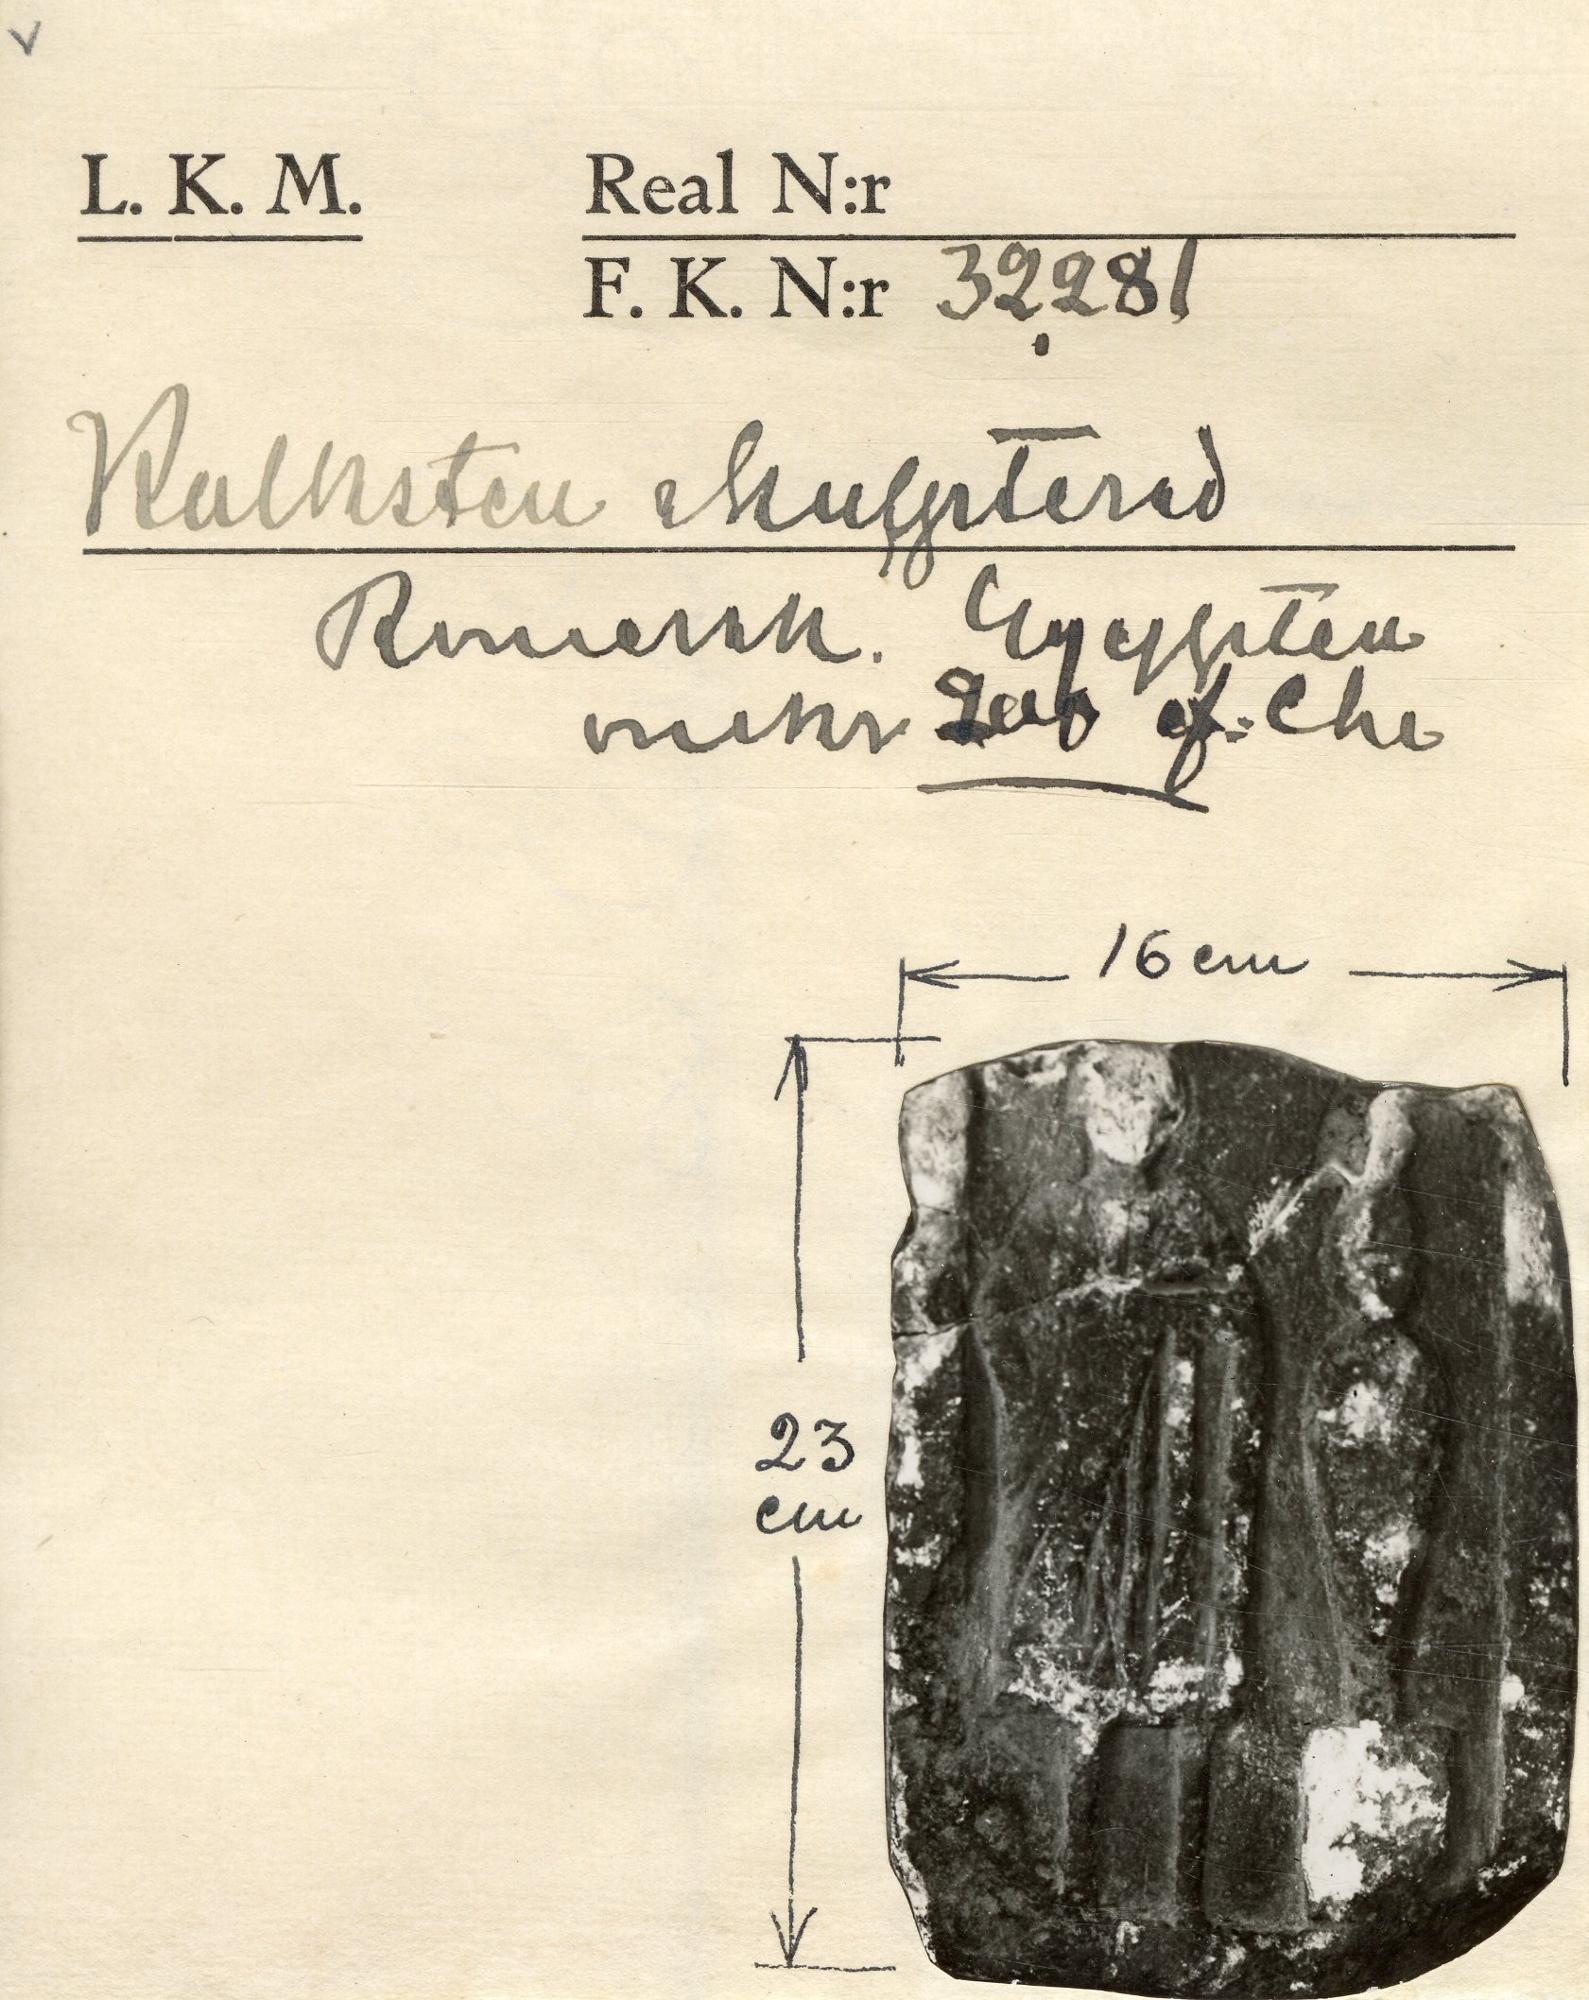 L. K. M.
Real N:r
F. K. N:r 32281
Kalksten skulpterad
Romersk. Egypten
200 ef: Che
16 cm
23
cm